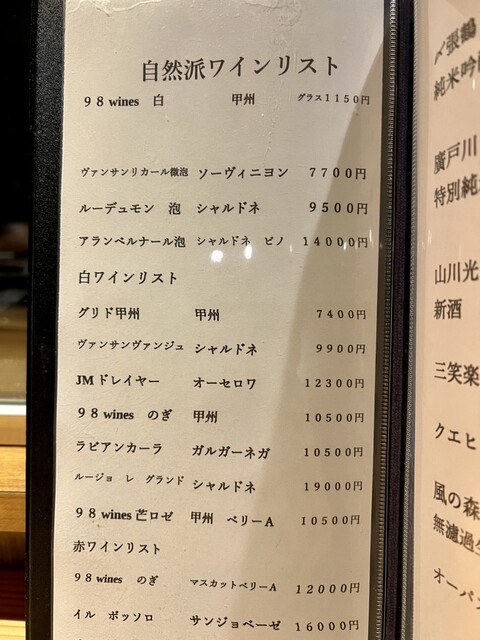 自然派ワインリスト
98wines 白 甲州 グラス1150円
ヴァンサンリカール微泡 ソーヴィニヨン 7700円
ルーデュモン 泡 シャルドネ 9500円
アランベルナール泡 シャルドネ ピノ 14000円
白ワインリスト
グリド甲州 甲州 7400円
ヴァンサンヴァンジュ シャルドネ 9900円
JMドレイヤー オーセロワ 12300円
98wines のぎ 甲州 10500円
ラビアンカーラ ガルガーネガ 10500円
ルージョ レ グランド シャルドネ 19000円
98wines芒ロゼ 甲州 ベリーA 10500円
赤ワインリスト
98wines のぎ マスカットベリーA 12000円
イル ボッソロ サンジョベーゼ 16000円
〆張鶴
純米吟
廣戸川
特別純
山川光
新酒
三笑楽
クエヒ
風の森
無濾過生
オーパ